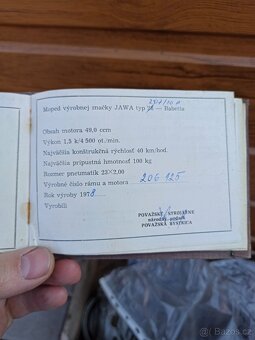 207/10 A
Moped výrobnej značky JAWA typ 28 — Babetta
Obsah motora 49,0 ccm
Výkon 1,5 k/4 500 ot./min.
Najväčšia konštrukčná rýchlosť 40 km/hod.
Najväčšia prípustná hmotnosť 100 kg
Rozmer pneumatík 23×2,00
Výrobné číslo rámu a motora 206 125
Rok výroby 1978
Vyrobili
POVAŽSKÉ STROJÁRNE
národný podnik
POVAŽSKÁ BYSTRICA
Sbazar.cz